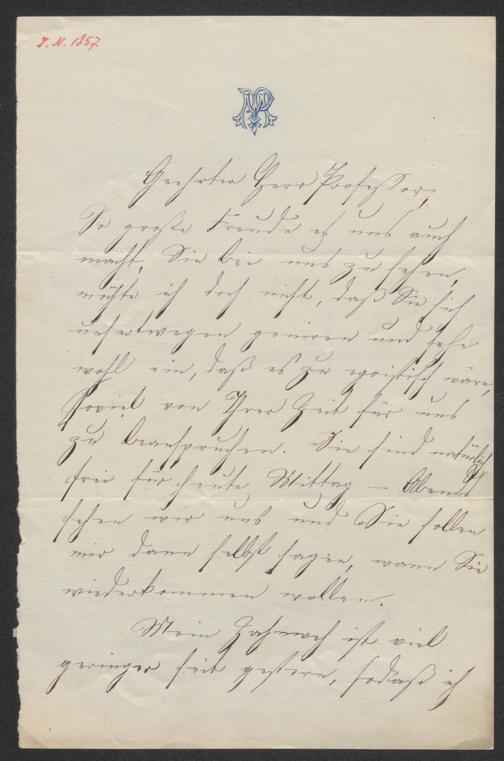 I. N. 1857
Geehrter Herr Professor,
So große Freude es uns auch
macht, Sie bei uns zu sehen,
möchte ich doch nicht, daß Sie sich
unsertwegen geniren und sehe
wohl ein, daß es zu egoistisch wäre,
soviel von Ihrer Zeit für uns
zu beanspruchen. Sie sind natürlich
frei für heute Mittag – Abends
sehen wir uns und Sie sollen
mir dann selbst sagen, wann Sie
wiederkommen wollen.
Mein Zahnweh ist viel
geringer seit gestern, sodaß ich